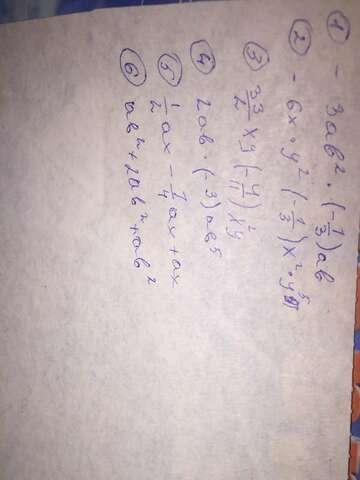 ① - 3ab² · (-1/3)ab
② - 6x · y² (-1/3)x² · y⁵
③ 33/2 xy (-4/11)x²y
④ 2ab · (-3)ab⁵
⑤ 1/2 ax - 7/4 ax + ax
⑥ ab² + 2ab² + ab²